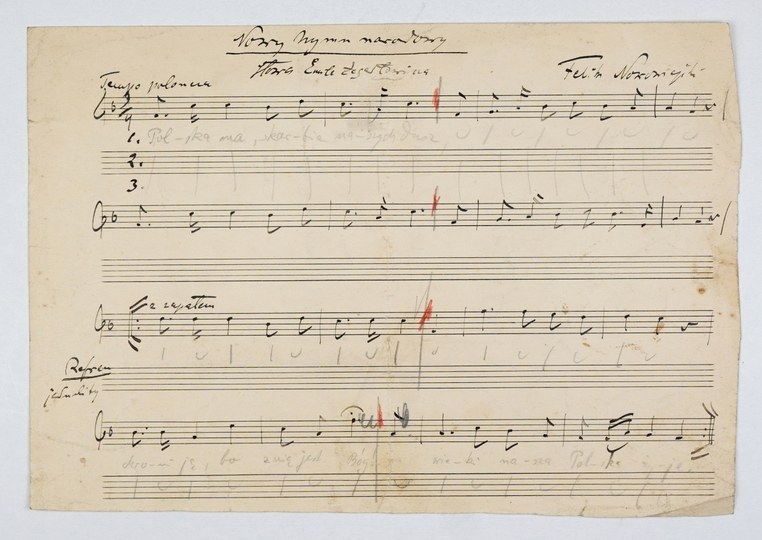 Nowy hymn narodowy
Słowa Emila Zegadłowicza
Feliks Nowowiejski
Tempo poloneza
3/4
1. Pol-ska ma, skar-bia na-szych dusz
2.
3.
z zapałem
Refren
jednolity
bo z nią jest Bóg
wie-ki na-sza Pol-ska